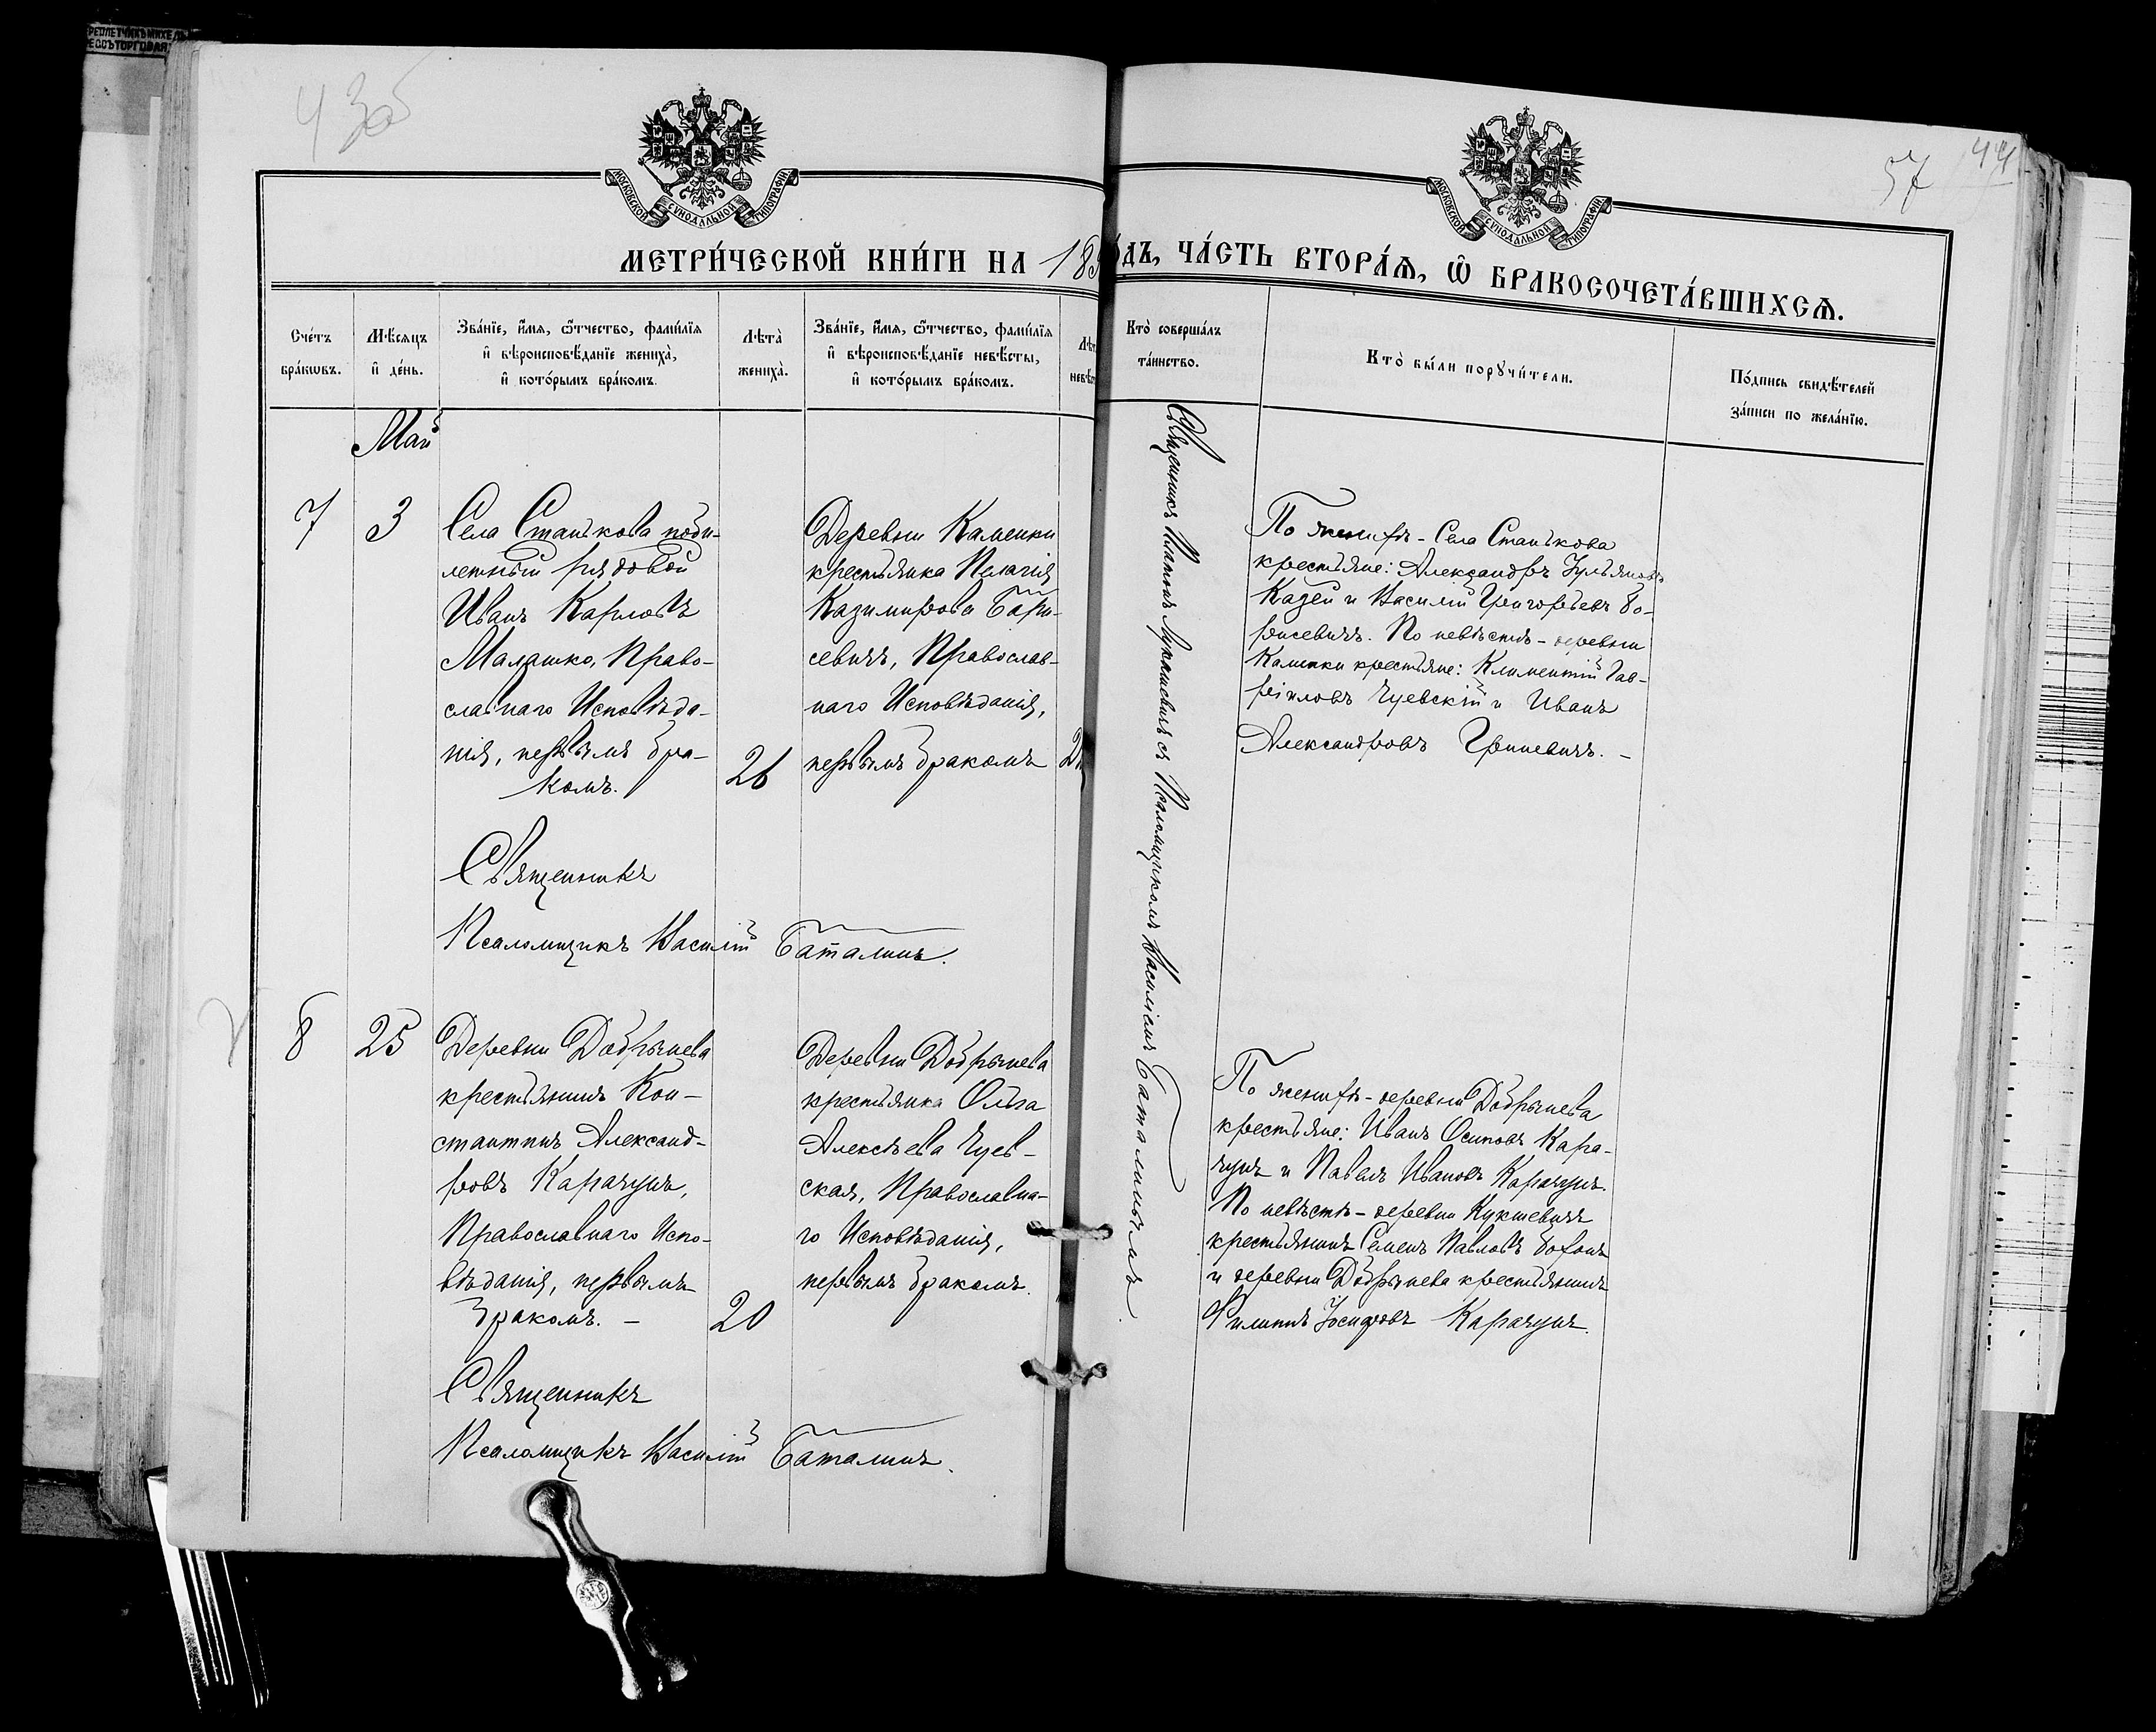 43об
57 44
МОСКОВСКОЙ СѴНОДАЛЬНОЙ ТИПОГРАФІИ
МОСКОВСКОЙ СѴНОДАЛЬНОЙ ТИПОГРАФІИ
МЕТРИ́ЧЕСКОЙ КНИ́ГИ НА 18
ДЪ, ЧА́СТЬ ВТОРА́Ѧ, Ѽ БРАКОСОЧЕТА́ВШИХСѦ.
Сче́тъ
бра́кѡвъ.
Мѣ́сяцъ
и҆ де́нь.
Зва́нїе, и҆́мя, ѻ҆́тчество, фами́лїя
и҆ вѣроисповѣ́данїе жениха̀,
и҆ кото́рымъ бра́комъ.
Лѣта̀
жениха̀.
Зва́нїе, и҆́мя, ѻ҆́тчество, фами́лїя
и҆ вѣроисповѣ́данїе невѣ́сты,
и҆ кото́рымъ бра́комъ.
Кто̀ соверша́лъ
та́инство.
Кто̀ бы́ли порꙋчи́тели.
По́дпись свидѣ́телей
за́писи по жела́нїю.
Май
7
3
Села Станькова
летный рядовой
Иванъ Карловъ
Малашко, Право-
славнаго Исповѣда-
нія, первымъ бра-
комъ.
26
Деревни Каменки
крестьянка Пелагія
Казимирова Бори-
севичъ, Православ-
наго Исповѣданія,
первымъ бракомъ
Священникъ Платонъ съ Псаломщикомъ Василіемъ Баталинымъ.
По женихѣ - Села Станькова
крестьяне: Александръ
Казей и Василій Григорьевъ Бо-
рисевичъ. По невѣстѣ - деревни
Каменки крестьяне: Климентій Гав-
ріиловъ Чуевскій и Иванъ
Александровъ Гриневичъ. -
Священникъ
Псаломщикъ Василій Баталинъ.
8
25
Деревни Добринева
крестьянинъ Кон-
стантинъ Александ-
ровъ Карачунъ,
Православнаго Испо-
вѣданія, первымъ
бракомъ. -
20
Деревни Добринева
крестьянка Ольга
Алексѣева Чуев-
ская, Православна-
го Исповѣданія,
первымъ бракомъ.
По женихѣ - деревни Добринева
крестьяне: Иванъ Осиповъ Кара-
чунъ и Павелъ Ивановъ Карачунъ.
По невѣстѣ - деревни Кукшевичъ
крестьянинъ Семенъ Павловъ
и деревни Добринева крестьянинъ
Филиппъ Іосифовъ Карачунъ.
Священникъ
Псаломщикъ Василій Баталинъ.